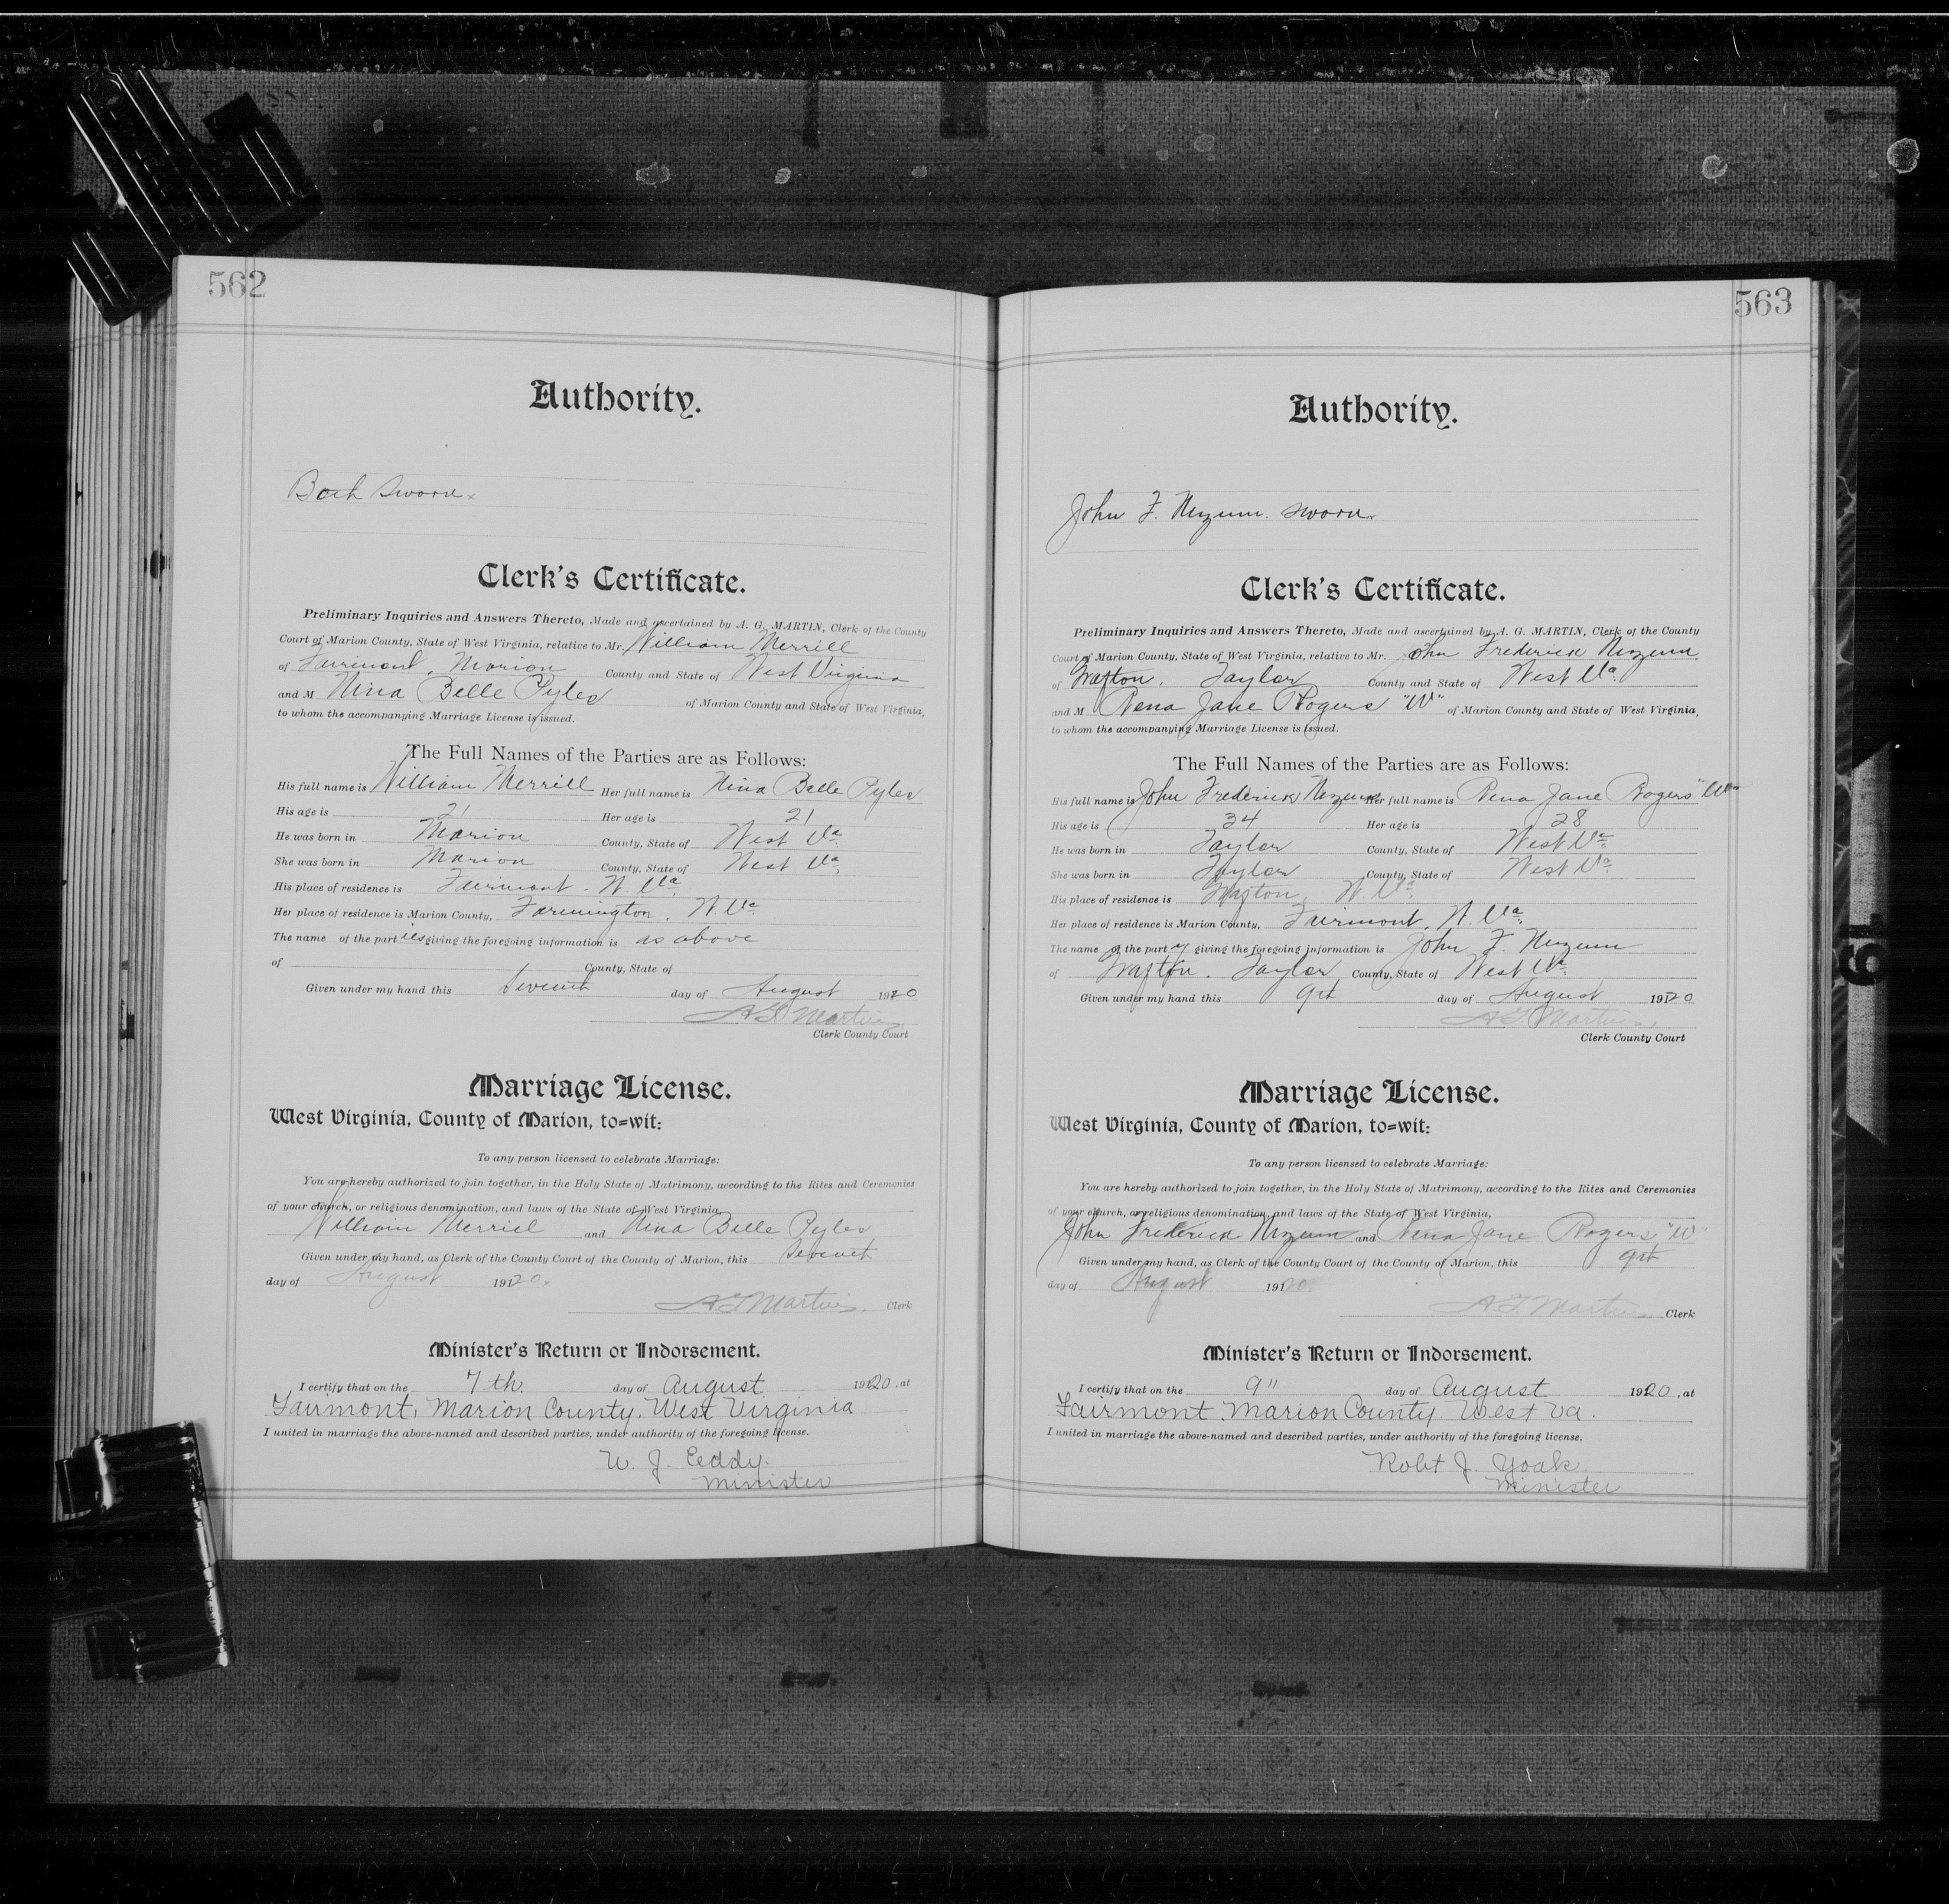 562
Authority.
Both sworn.
Clerk's Certificate.
Preliminary Inquiries and Answers Thereto, Made and ascertained by A. G. MARTIN, Clerk of the County
Court of Marion County, State of West Virginia, relative to Mr. William Merrill
of Fairmont, Marion County and State of West Virginia
and M Nina Belle Pyles of Marion County and State of West Virginia,
to whom the accompanying Marriage License is issued.
The Full Names of the Parties are as Follows:
His full name is William Merrill Her full name is Nina Belle Pyles
His age is 21 Her age is 21
He was born in Marion County, State of West Va.
She was born in Marion County, State of West Va.
His place of residence is Fairmont - W. Va.
Her place of residence is Marion County, Farmington, W. Va
The name of the parties giving the foregoing information is as above
of County, State of
Given under my hand this Seventh day of August 1920
A G Martin
Clerk County Court
Marriage License.
West Virginia, County of Marion, to=wit:
To any person licensed to celebrate Marriage:
You are hereby authorized to join together, in the Holy State of Matrimony, according to the Rites and Ceremonies
of your church, or religious denomination, and laws of the State of West Virginia,
William Merrill and Nina Belle Pyles
Given under my hand, as Clerk of the County Court of the County of Marion, this Seventh
day of August 1920.
A G Martin, Clerk
Minister's Return or Indorsement.
I certify that on the 7th. day of August 1920, at
Fairmont, Marion County, West Virginia
I united in marriage the above-named and described parties, under authority of the foregoing license.
W. J. Eddy.
Minister
563
Authority.
John F. Nuzum. sworn.
Clerk's Certificate.
Preliminary Inquiries and Answers Thereto, Made and ascertained by A. G. MARTIN, Clerk of the County
Court of Marion County, State of West Virginia, relative to Mr. John Frederick Nuzum
of Grafton. Taylor County and State of West Va.
and M Rena Jane Rogers "W" of Marion County and State of West Virginia,
to whom the accompanying Marriage License is issued.
The Full Names of the Parties are as Follows:
His full name is John Frederick Nuzum Her full name is Rena Jane Rogers "W"
His age is 34 Her age is 28
He was born in Taylor County, State of West Va.
She was born in Taylor County, State of West Va.
His place of residence is Grafton, W. Va.
Her place of residence is Marion County, Fairmont, W. Va.
The name of the party giving the foregoing information is John F. Nuzum
of Grafton. Taylor County, State of West Va.
Given under my hand this 9th day of August 1920
A G Martin,
Clerk County Court
Marriage License.
West Virginia, County of Marion, to=wit:
To any person licensed to celebrate Marriage:
You are hereby authorized to join together, in the Holy State of Matrimony, according to the Rites and Ceremonies
of your church, or religious denomination, and laws of the State of West Virginia,
John Frederick Nuzum and Rena Jane Rogers "W"
Given under my hand, as Clerk of the County Court of the County of Marion, this 9th
day of August 1920.
A G Martin, Clerk
Minister's Return or Indorsement.
I certify that on the 9" day of August 1920, at
Fairmont, Marion County, West Va.
I united in marriage the above-named and described parties, under authority of the foregoing license.
Robt J. Yoak
Minister